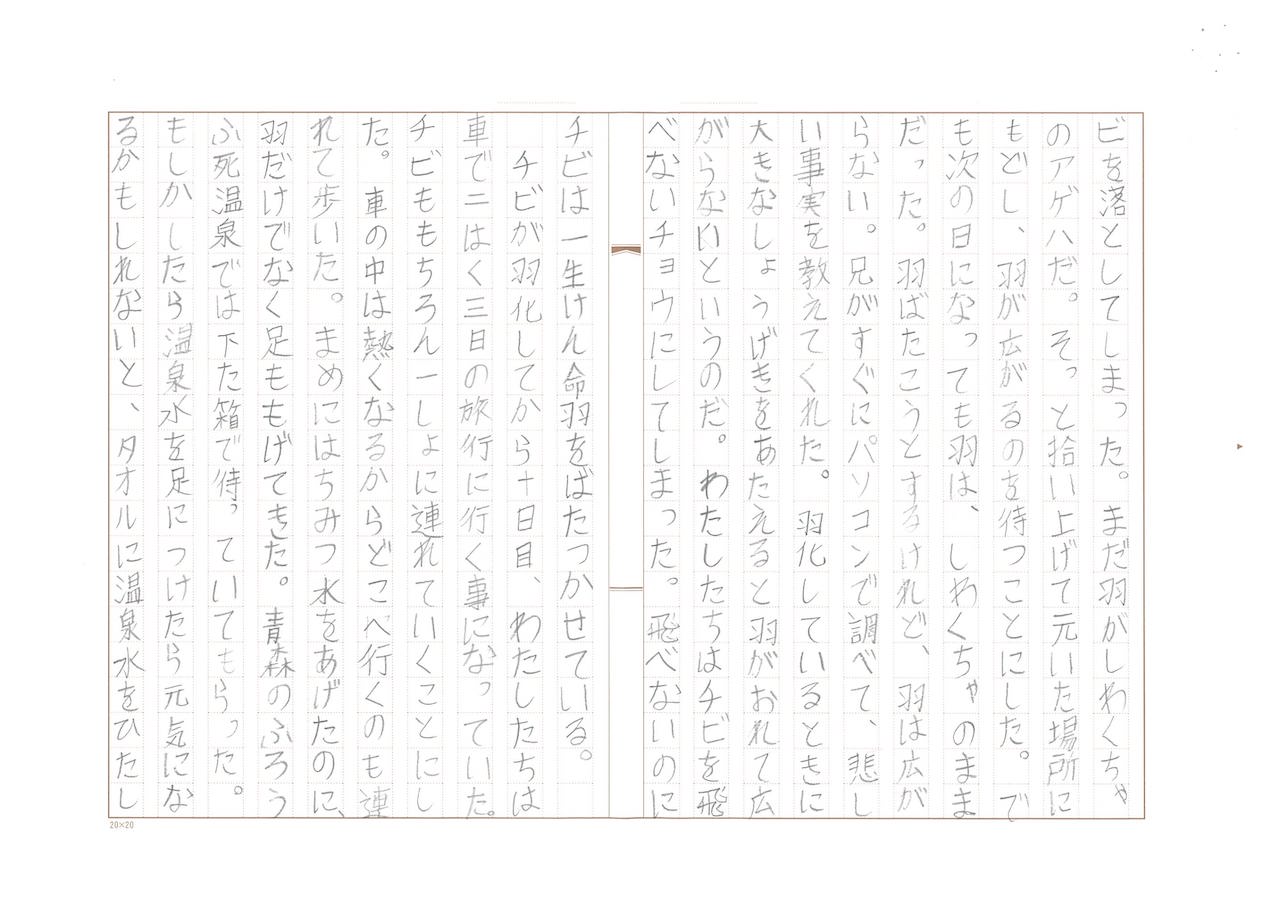 ビを落としてしまった。まだ羽がしわくちゃ
のアゲハだ。そっと拾い上げて元いた場所に
もどし、羽が広がるのを待つことにした。で
も次の日になっても羽は、しわくちゃのまま
だった。羽ばたこうとするけれど、羽は広が
らない。兄がすぐにパソコンで調べて、悲し
い事実を教えてくれた。羽化しているときに
大きなしょうげきをあたえると羽がおれて広
がらないというのだ。わたしたちはチビを飛
べないチョウにしてしまった。飛べないのに
チビは一生けん命羽をばたつかせている。
チビが羽化してから十日目、わたしたちは
車で二はく三日の旅行に行く事になっていた。
チビももちろん一しょに連れていくことにし
た。車の中は熱くなるからどこへ行くのも連
れて歩いた。まめにはちみつ水をあげたのに、
羽だけでなく足ももげてきた。青森のふろう
ふ死温泉では下た箱で待っていてもらった。
もしかしたら温泉水を足につけたら元気にな
るかもしれないと、タオルに温泉水をひたし
20×20